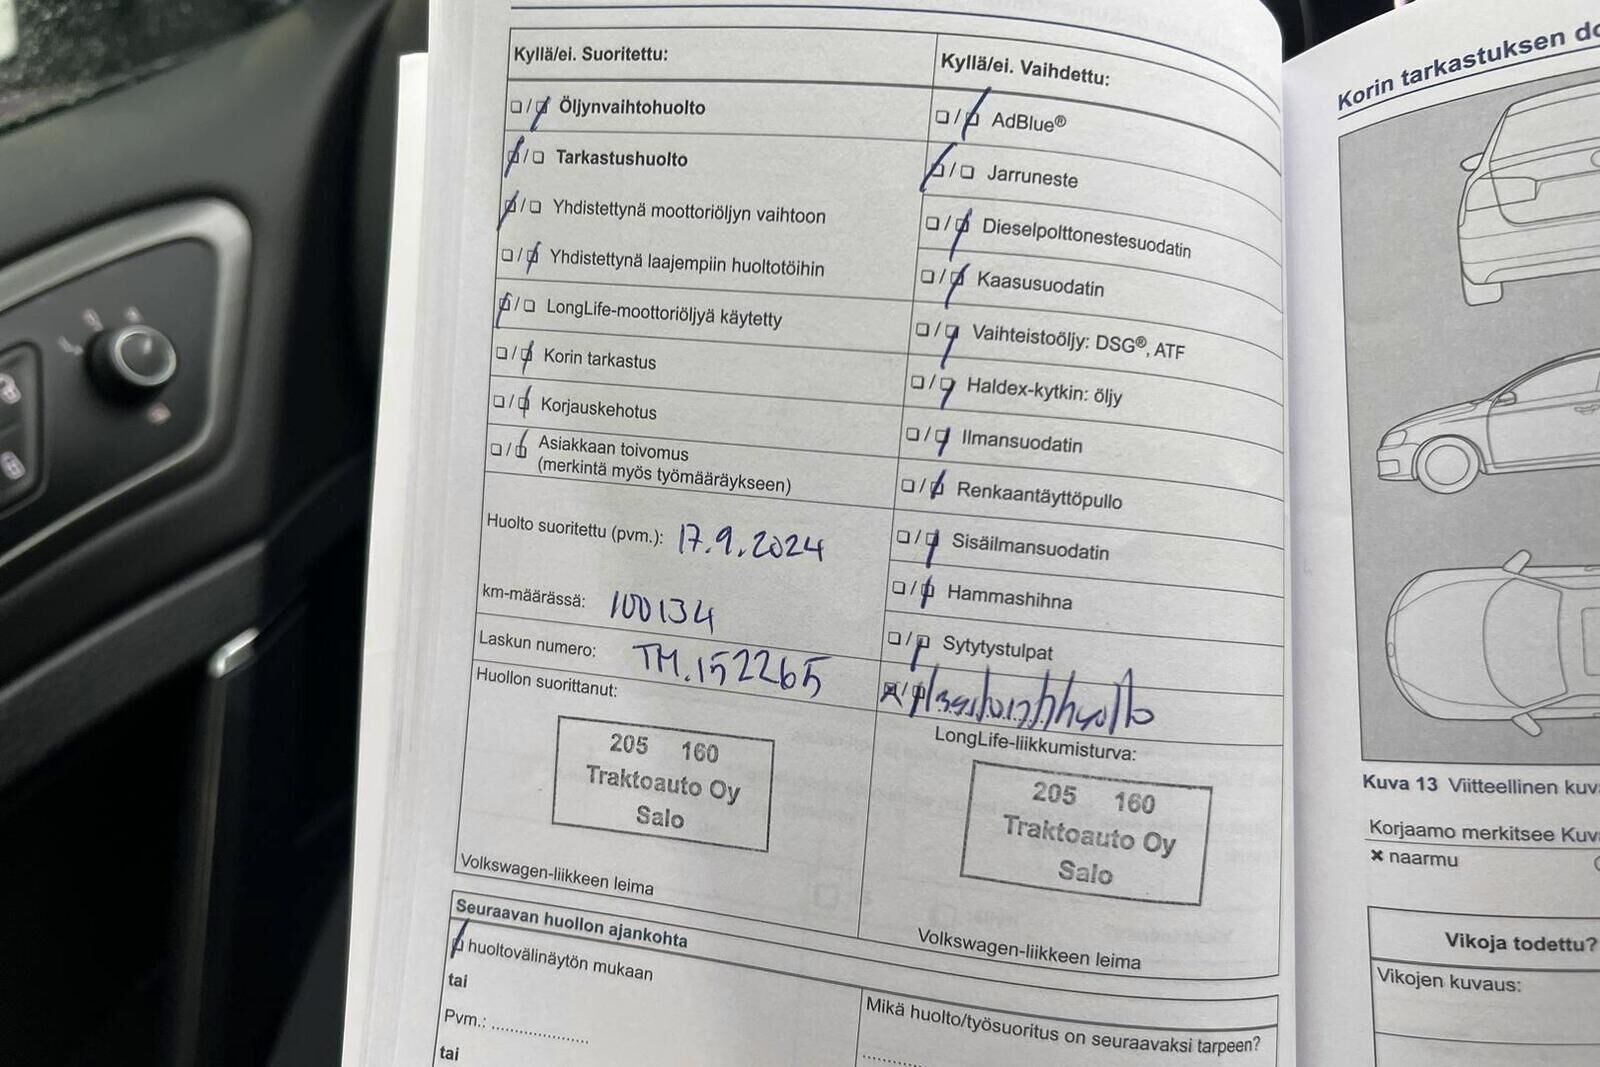 Kyllä/ei. Suoritettu:
Öljynvaihtohuolto
Tarkastushuolto
Yhdistettynä moottoriöljyn vaihtoon
Yhdistettynä laajempiin huoltotöihin
LongLife-moottoriöljyä käytetty
Korin tarkastus
Korjauskehotus
Asiakkaan toivomus
(merkintä myös työmääräykseen)
Huolto suoritettu (pvm.): 17.9.2024
km-määrässä: 100134
Laskun numero: TM.152265
Huollon suorittanut:
205 160
Traktoauto Oy
Salo
Volkswagen-liikkeen leima
Kyllä/ei. Vaihdettu:
AdBlue®
Jarruneste
Dieselpolttonestesuodatin
Kaasusuodatin
Vaihteistoöljy: DSG®, ATF
Haldex-kytkin: öljy
Ilmansuodatin
Renkaantäyttöpullo
Sisäilmansuodatin
Hammashihna
Sytytystulpat
LongLife-liikkumisturva:
205 160
Traktoauto Oy
Salo
Volkswagen-liikkeen leima
Seuraavan huollon ajankohta
huoltovälinäytön mukaan
tai
Pvm.: ................
tai
Mikä huolto/työsuoritus on seuraavaksi tarpeen?
Korin tarkastuksen
Kuva 13 Viitteellinen
Korjaamo merkitsee
✖ naarmu
Vikoja todettu?
Vikojen kuvaus: